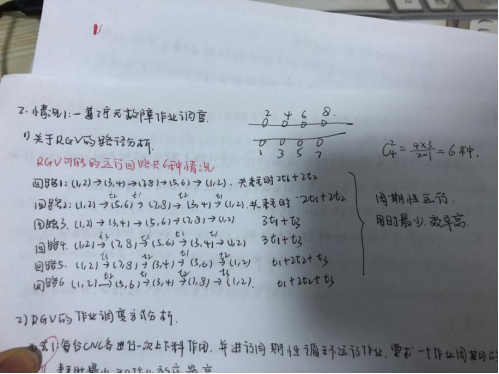 2. 情况1:一道工序无故障作业调度.
2 4 6 8.
1 3 5 7
1) 关于RGV的路径分析.
C₄² = 4×3/2×1 = 6种.
RGV可能的运行回路共6种情况
回路1: (1,2)→(3,4)→(7,8)→(5,6)→(1,2). 共耗时2t1+2t2
回路2: (1,2)→(5,6)→(7,8)→(3,4)→(1,2). 共耗时 2t1+2t2
回路3. (1,2)→(3,4)→(5,6)→(7,8)→(1,2) 3t1+t3
回路4. (1,2)→(7,8)→(5,6)→(3,4)→(1,2) 3t1+t3
回路5. (1,2)→(7,8)→(3,4)→(5,6)→(1,2) t1+2t2+t3
回路6 (1,2)→(5,6)→(3,4)→(7,8)→(1,2). t1+2t2+t3
周期性运行.
用时最少,效率高.
2) RGV的作业调度方式分析.
每台CNC各进行一次上下料作用,并进行周期性循环运行作业,要求一个作业周期内